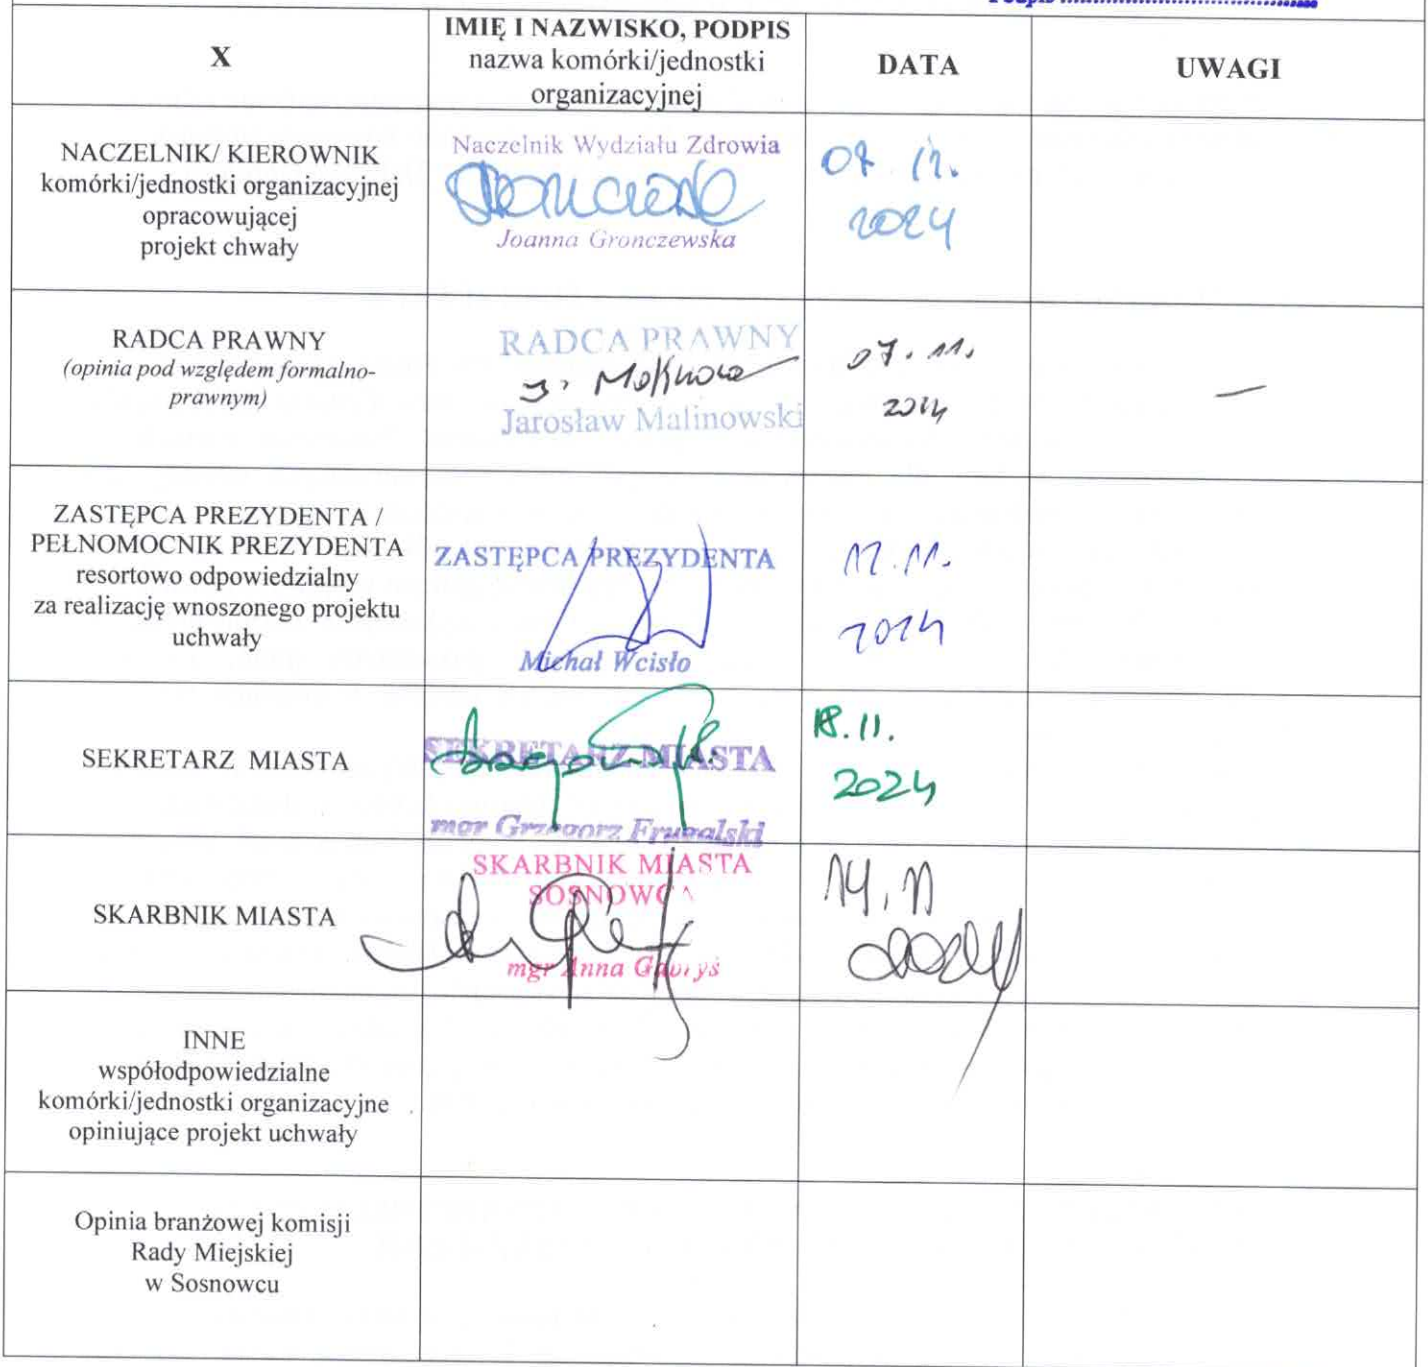 X
IMIĘ I NAZWISKO, PODPIS
nazwa komórki/jednostki
organizacyjnej
DATA
UWAGI
NACZELNIK/ KIEROWNIK
komórki/jednostki organizacyjnej
opracowującej
projekt chwały
Naczelnik Wydziału Zdrowia
Joanna Gronczewska
2024
RADCA PRAWNY
(opinia pod względem formalno-
prawnym)
RADCA PRAWNY
Jarosław Malinowski
07.11.
2024
—
ZASTĘPCA PREZYDENTA /
PEŁNOMOCNIK PREZYDENTA
resortowo odpowiedzialny
za realizację wnoszonego projektu
uchwały
ZASTĘPCA PREZYDENTA
Michał Wcisło
12.11.
2024
SEKRETARZ MIASTA
SEKRETARZ MIASTA
mgr Grzegorz Frugalski
18.11.
2024
SKARBNIK MIASTA
SKARBNIK MIASTA
SOSNOWCA
mgr Anna Gabryś
14.11
INNE
współodpowiedzialne
komórki/jednostki organizacyjne
opiniujące projekt uchwały
Opinia branżowej komisji
Rady Miejskiej
w Sosnowcu